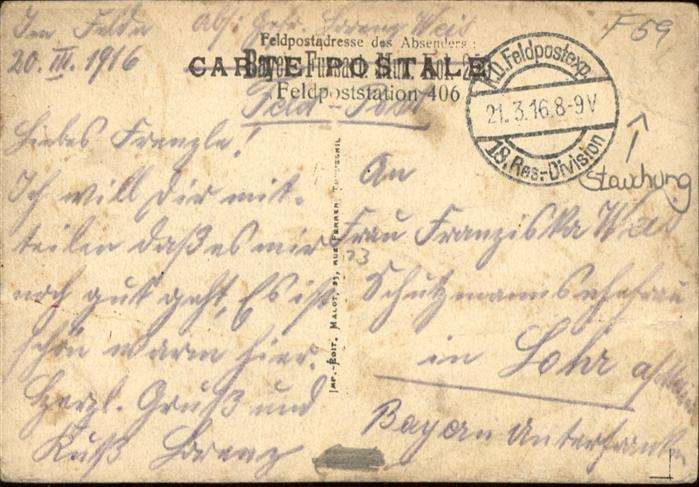 Im Felde Abs: Gefr. Lorenz Weis
20. III. 1916
F 59
Feldpostadresse des Absenders:
CARTE POSTALE
Bayer. Fussart. Mun. Kol.
Feldpoststation 406
Feld-Post
K.D. Feldpostexp.
21.3.16.8-9V
18. Res.-Division
Stauchung
Liebes Frenzle!
Ich will Dir mit-
teilen daß es mir
noch gut geht, Es ist
schön warm hier.
Herzl. Gruß und
Kuß Lorenz
IMP.-EDIT. MALOT, 23, RUE FERRER,
23
An
Frau Franziska Weis
Schutzmannsehefrau
in Lohr a/Main
Bayern Unterfranken